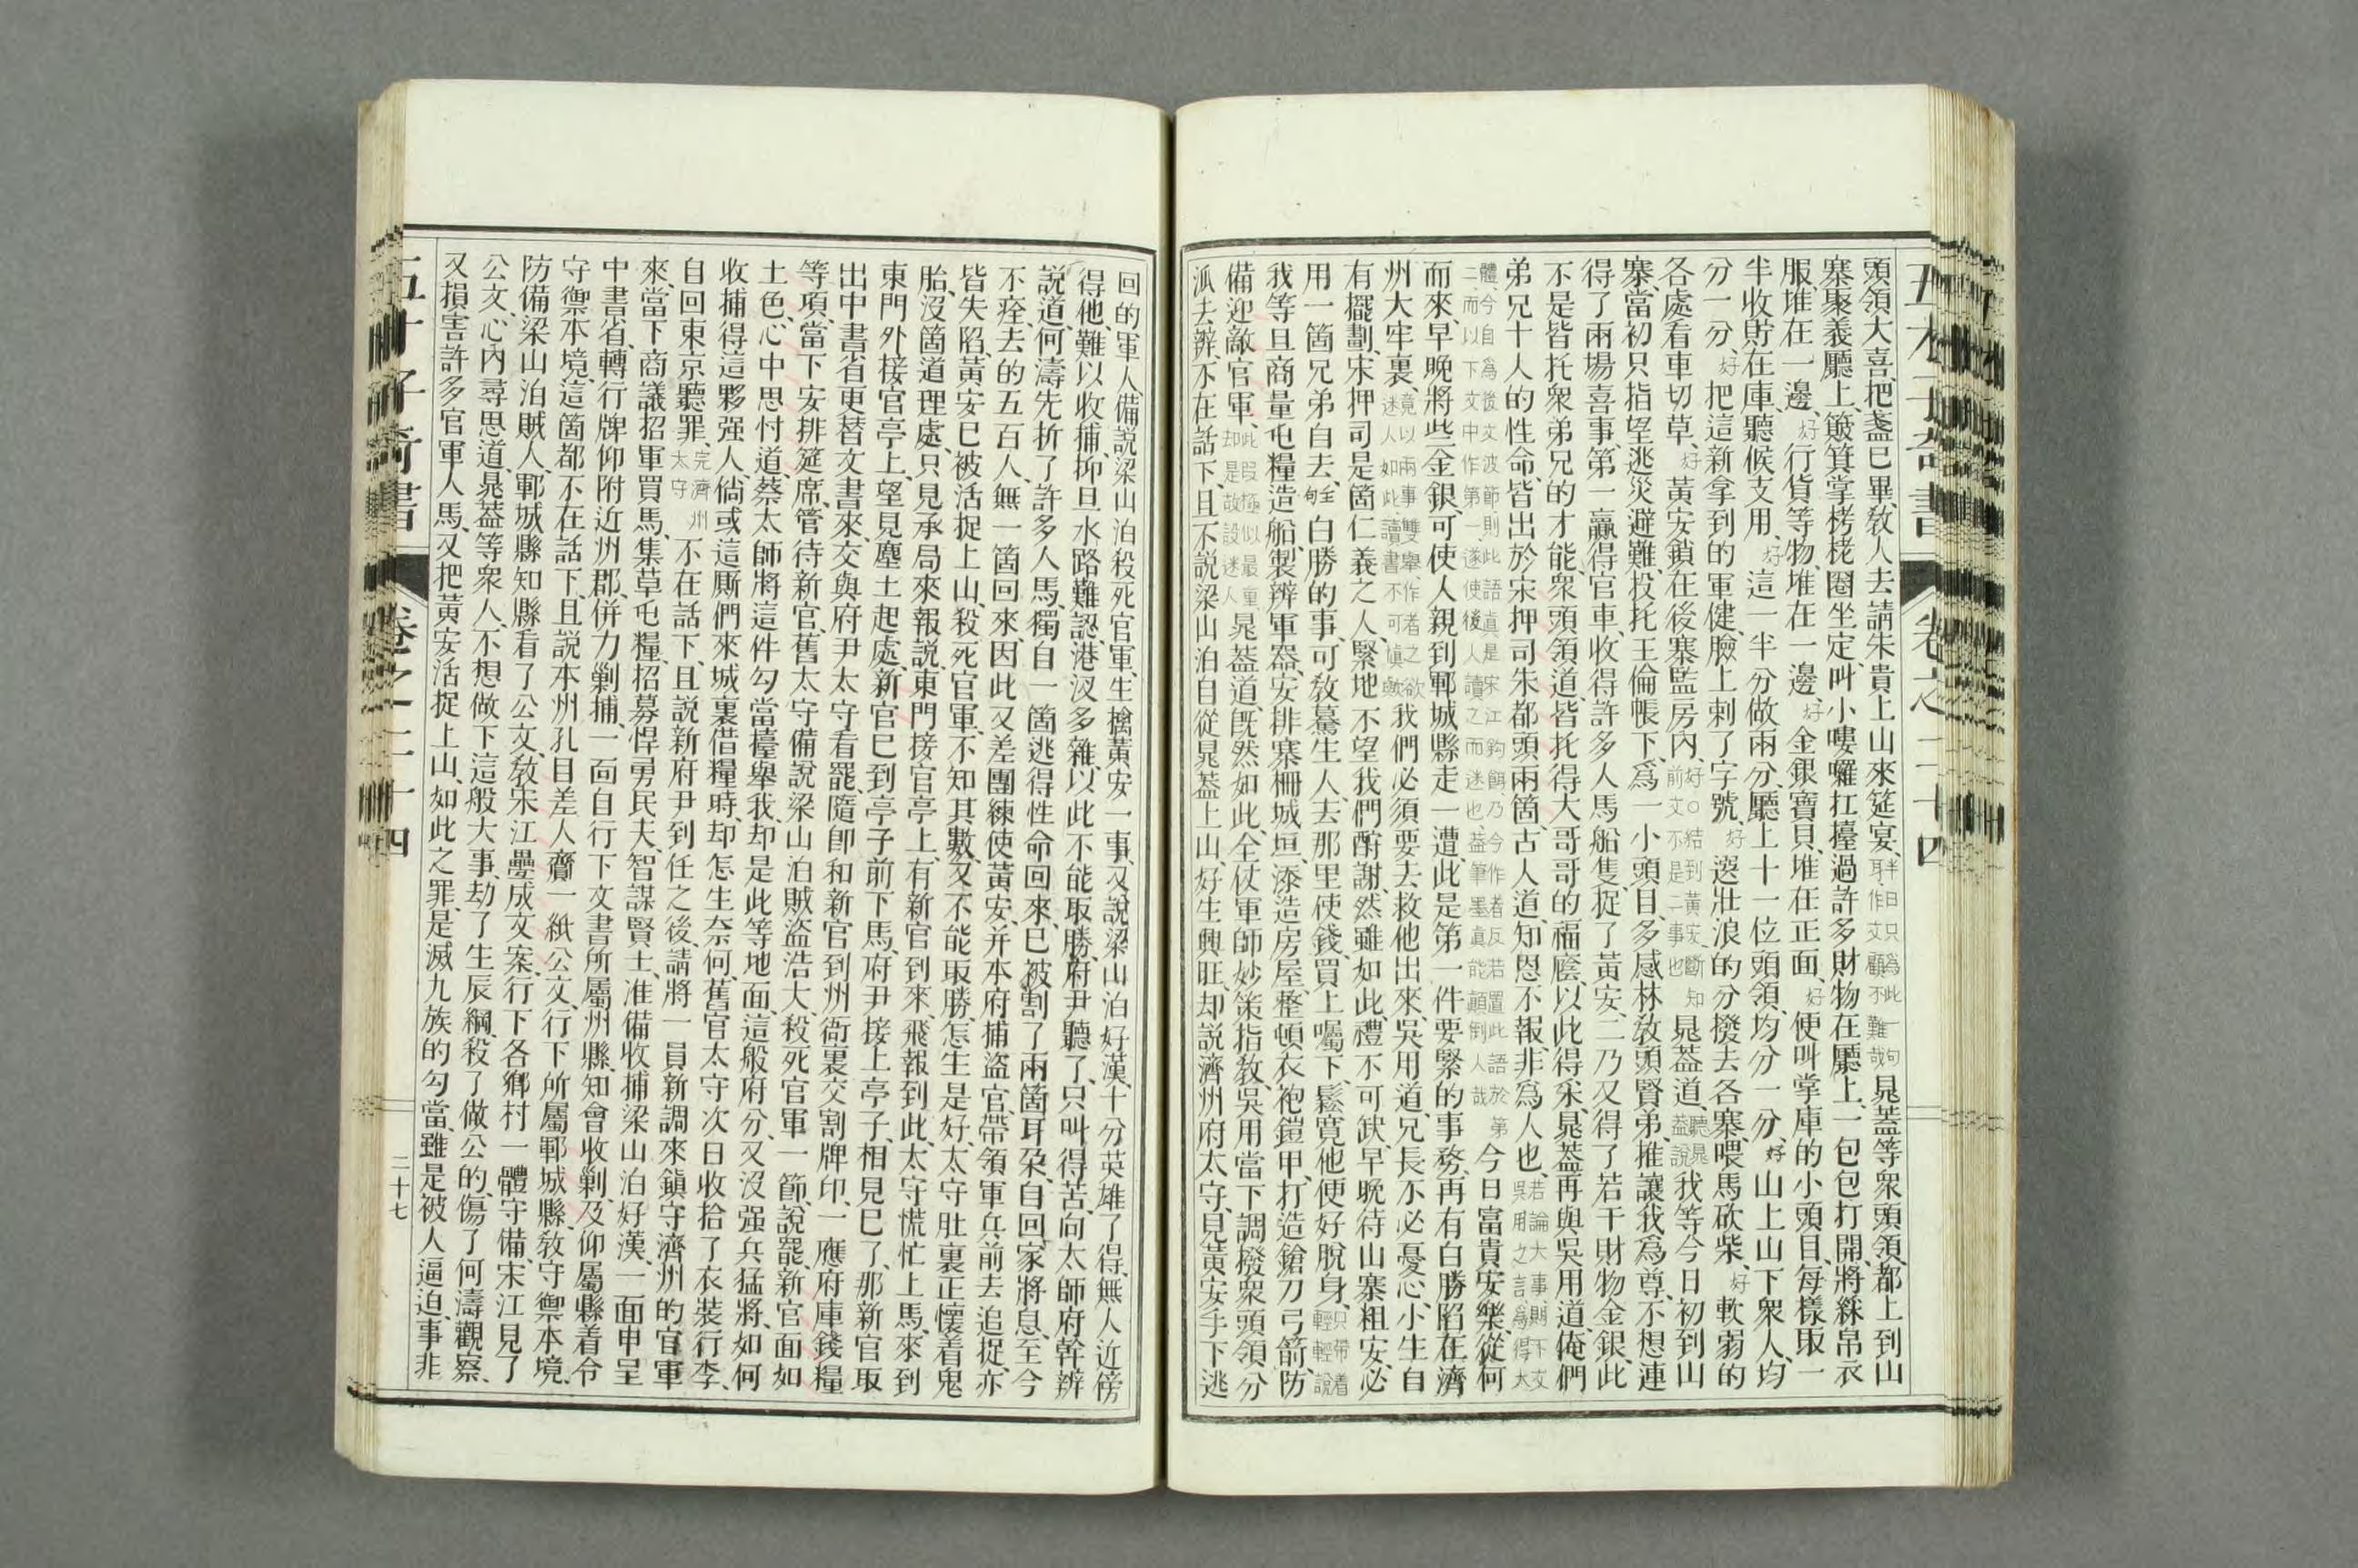 頭領大喜、把盞已畢、教人去請朱貴上山來筵宴、半日只爲此一句耳、作文顧不難哉晁蓋等衆頭領、都上到山
寨聚義廳上、簸箕掌栲栳圈坐定、叫小嘍囉扛擡過許多財物在廳上、一包包打開、將綵帛衣
服、堆在一邊、好行貨等物、堆在一邊、好金銀寶貝、堆在正面、好便叫掌庫的小頭目、每樣取一
半收貯在庫、聽候支用、好這一半分做兩分、廳上十一位頭領、均分一分、好山上山下衆人、均
分一分、好把這新拿到的軍健、臉上刺了字號、好選壯浪的分撥去各寨、喂馬砍柴、好軟弱的
各處看車切草、好黃安鎖在後寨監房內、好○結到黃安、斷知前文不是二事也晁蓋道、聽晁蓋說我等今日初到山
寨、當初只指望逃災避難、投托王倫帳下、爲一小頭目、多感林教頭賢弟、推讓我爲尊、不想連
得了兩場喜事、第一贏得官車、收得許多人馬船隻、捉了黃安、二乃又得了若干財物金銀、此
不是皆托衆弟兄的才能、衆頭領道、皆托得大哥哥的福廕、以此得采、晁蓋再與吳用道、俺們
弟兄十人的性命、皆出於宋押司朱都頭兩箇、古人道、知恩不報、非爲人也、若論大事、則下文吳用之言爲得大
體、今自爲後文波節、則此語眞是宋江鈎餌、乃今作者反若置此語於第二、而以下文中作第一、遂使後人讀之而迷也、益筆墨眞能顚倒人哉今日富貴安樂、從何
而來、早晚將些金銀、可使人親到鄆城縣走一遭、此是第一件要緊的事務、再有白勝陷在濟
州大牢裏、竟以兩事雙舉、作者之欲迷人如此、讀書不可愼歟我們必須要去救他出來、吳用道、兄長不必憂心、小生自
有擺劃、宋押司是箇仁義之人、緊地不望我們酧謝、然雖如此、禮不可缺、早晚待山寨粗安、必
用一箇兄弟自去、白勝的事、可教驀生人去那里使錢、買上囑下、鬆寬他便好脫身、只帶着輕輕說
我等且商量屯糧造船、製辨軍器、安排寨柵城垣、添造房屋、整頓衣袍鎧甲、打造鎗刀弓箭、防
備迎敵官軍、此叚極似最重却是故設迷人晁蓋道、旣然如此、全仗軍師妙策指教、吳用當下調撥衆頭領、分
派去辦、不在話下、且不說梁山泊自從晁蓋上山、好生興旺、却說濟州府太守、見黃安手下逃
回的軍人、備說梁山泊殺死官軍、生擒黃安一事、又說梁山泊好漢、十分英雄了得、無人近傍
得他、難以收捕、抑且水路難認、港汊多雜、以此不能取勝、府尹聽了、只叫得苦、向太師府幹辨
說道、何濤先折了許多人馬、獨自一箇逃得性命回來、已被割了兩箇耳朶、自回家將息、至今
不痊、去的五百人、無一箇回來、因此又差團練使黃安、并本府捕盜官、帶領軍兵、前去追捉、亦
皆失陷、黃安已被活捉上山、殺死官軍、不知其數、又不能取勝、怎生是好、太守肚裏正懷着鬼
胎、沒箇道理處、只見承局來報說、東門接官亭上、有新官到來、飛報到此、太守慌忙上馬、來到
東門外接官亭上、望見塵土起處、新官已到亭子前下馬、府尹接上亭子、相見已了、那新官取
出中書省更替文書來、交與府尹、太守看罷、隨卽和新官到州衙裏、交割牌印、一應府庫錢糧
等項、當下安排筵席、管待新官、舊太守備說梁山泊賊盜浩大、殺死官軍一節、說罷、新官面如
土色、心中思忖道、蔡太師將這件勾當擡舉我、却是此等地面、這般府分、又沒强兵猛將、如何
收捕得這夥强人、倘或這厮們來城裏借糧時、却怎生奈何、舊官太守次日收拾了衣裝行李、
自回東京聽罪、完濟州太守不在話下、且說新府尹到任之後、請將一員新調來鎭守濟州的官軍
來、當下商議招軍買馬、集草屯糧、招募悍勇民夫、智謀賢士、准備收捕梁山泊好漢、一面申呈
中書省、轉行牌仰附近州郡、併力剿捕、一面自行下文書所屬州縣、知會收剿、及仰屬縣着令
守禦本境、這箇都不在話下、且說本州孔目、差人齎一紙公文、行下所屬鄆城縣、教守禦本境、
防備梁山泊賊人、鄆城縣知縣看了公文、教宋江疊成文案、行下各鄉村一體守備、宋江見了
公文、心內尋思道、晁蓋等衆人、不想做下這般大事、劫了生辰綱、殺了做公的、傷了何濤觀察、
又損害許多官軍人馬、又把黃安活捉上山、如此之罪、是滅九族的勾當、雖是被人逼迫、事非
五才子奇書
卷之二十四
二十七